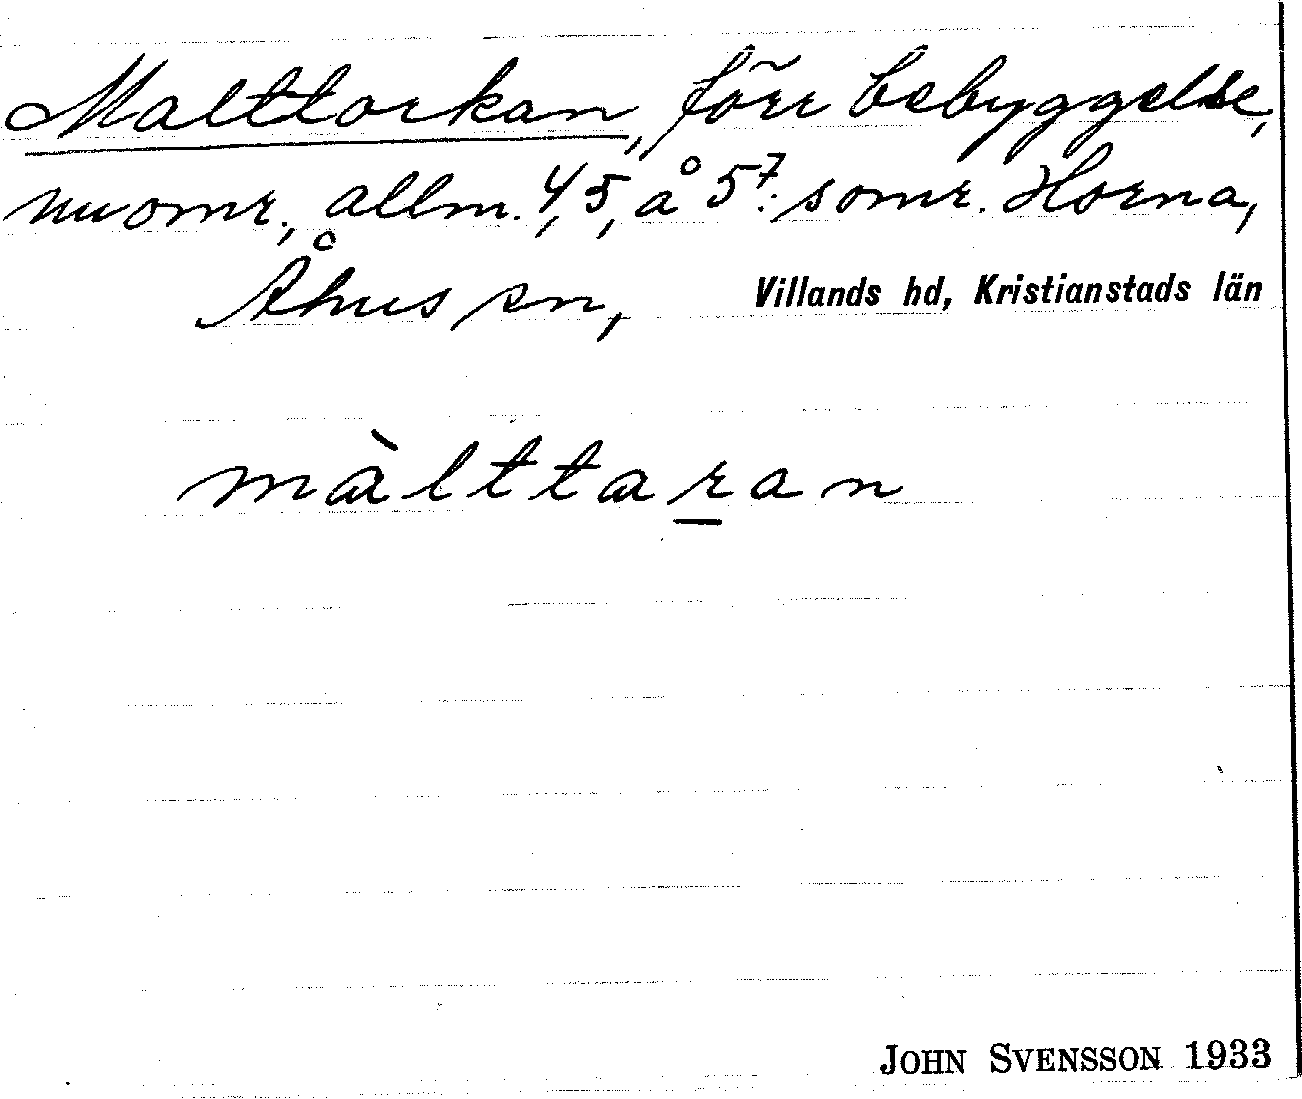 Malttorkan, förr bebyggelse,
nu omr., allm. 4, 5, å 5⁷: s omr. Horna,
Åhus sn, Villands hd, Kristianstads län
màlttaran
JOHN SVENSSON 1933